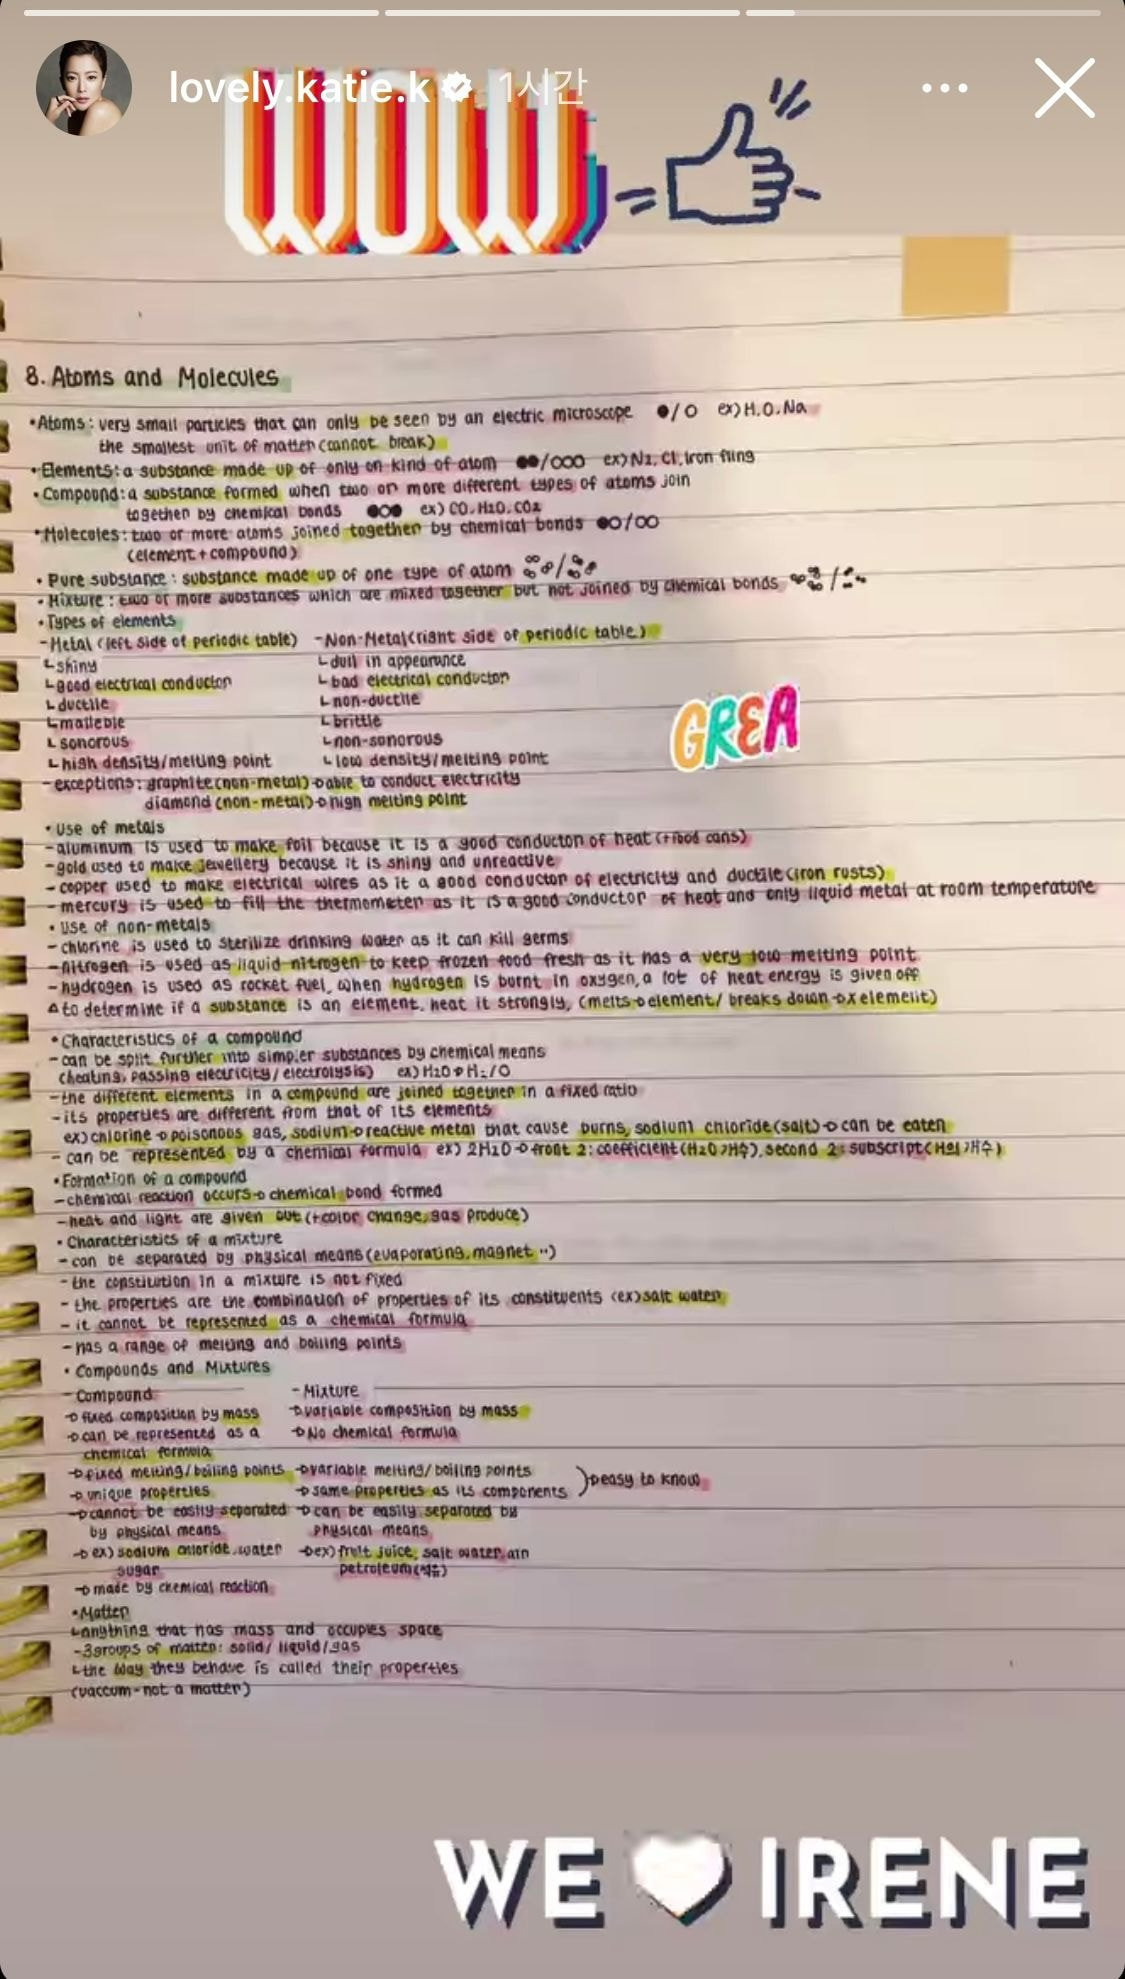 lovely.katie.k 1시간
WOW
8. Atoms and Molecules
• Atoms : very small particles that can only be seen by an electric microscope ●/○ ex) H, O, Na
the smallest unit of matter (cannot break)
• Elements : a substance made up of only on kind of atom ●●/○○○ ex) N2, Cl, Iron filing
• Compound : a substance formed when two or more different types of atoms join
together by chemical bonds ●○● ex) CO, H2O, CO2
• Molecules : two or more atoms joined together by chemical bonds ●○/○○
(element + compound)
• Pure substance : substance made up of one type of atom
• Mixture : two or more substances which are mixed together but not joined by chemical bonds
• Types of elements
- Metal (left side of periodic table) - Non-Metal (right side of periodic table)
└ shiny └ dull in appearance
└ good electrical conductor └ bad electrical conductor
└ ductile └ non-ductile
└ malleble └ brittle
└ sonorous └ non-sonorous
GREA
└ high density/melting point └ low density/melting point
- exceptions : graphite (non-metal) → able to conduct electricity
diamond (non-metal) → high melting point
• Use of metals
- aluminum is used to make foil because it is a good conductor of heat (+food cans)
- gold used to make jewellery because it is shiny and unreactive
- copper used to make electrical wires as it a good conductor of electricity and ductile (iron rusts)
- mercury is used to fill the thermometer as it is a good conductor of heat and only liquid metal at room temperature
• Use of non-metals
- chlorine is used to sterilize drinking water as it can kill germs
- nitrogen is used as liquid nitrogen to keep frozen food fresh as it has a very low melting point
- hydrogen is used as rocket fuel, when hydrogen is burnt in oxygen, a lot of heat energy is given off
△ to determine if a substance is an element, heat it strongly, (melts → element / breaks down → x element)
• Characteristics of a compound
- can be split further into simpler substances by chemical means
(heating, passing electricity / electrolysis) ex) H2O → H2/O
- the different elements in a compound are joined together in a fixed ratio
- its properties are different from that of its elements
ex) chlorine → poisonous gas, sodium → reactive metal that cause burns, sodium chloride (salt) → can be eaten
- can be represented by a chemical formula ex) 2H2O → front 2 : coefficient (H2O개수), second 2 : subscript (H의 개수)
• Formation of a compound
- chemical reaction occurs → chemical bond formed
- heat and light are given out (+color change, gas produce)
• Characteristics of a mixture
- can be separated by physical means (evaporating, magnet ..)
- the constitution in a mixture is not fixed
- the properties are the combination of properties of its constituents (ex) salt water
- it cannot be represented as a chemical formula
- has a range of melting and boiling points
• Compounds and Mixtures
- Compound - Mixture
→ fixed composition by mass → variable composition by mass
→ can be represented as a → No chemical formula
chemical formula
→ fixed melting/boiling points → variable melting/boiling points
→ unique properties → same properties as its components ) → easy to know
→ cannot be easily separated → can be easily separated by
by physical means physical means
→ ex) sodium chloride, water → ex) fruit juice, salt water, air
sugar petroleum (석유)
→ made by chemical reaction
• Matter
└ anything that has mass and occupies space
- 3 groups of matter : solid / liquid / gas
└ the way they behave is called their properties
(vaccum - not a matter)
WE IRENE